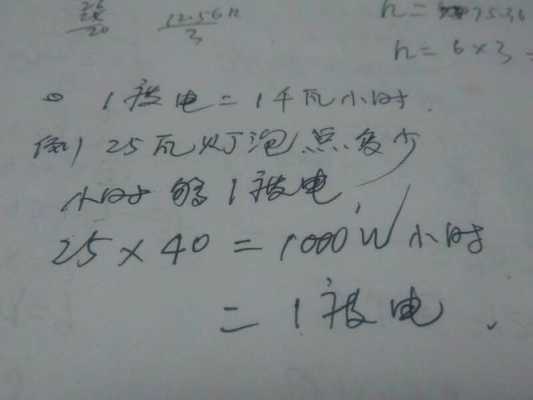 12.56h
3
h=
75.36
h=6×3=
1被电=1千瓦小时.
例) 25瓦灯泡点多少
小时够1被电
25×40=1000W小时
=1被电.